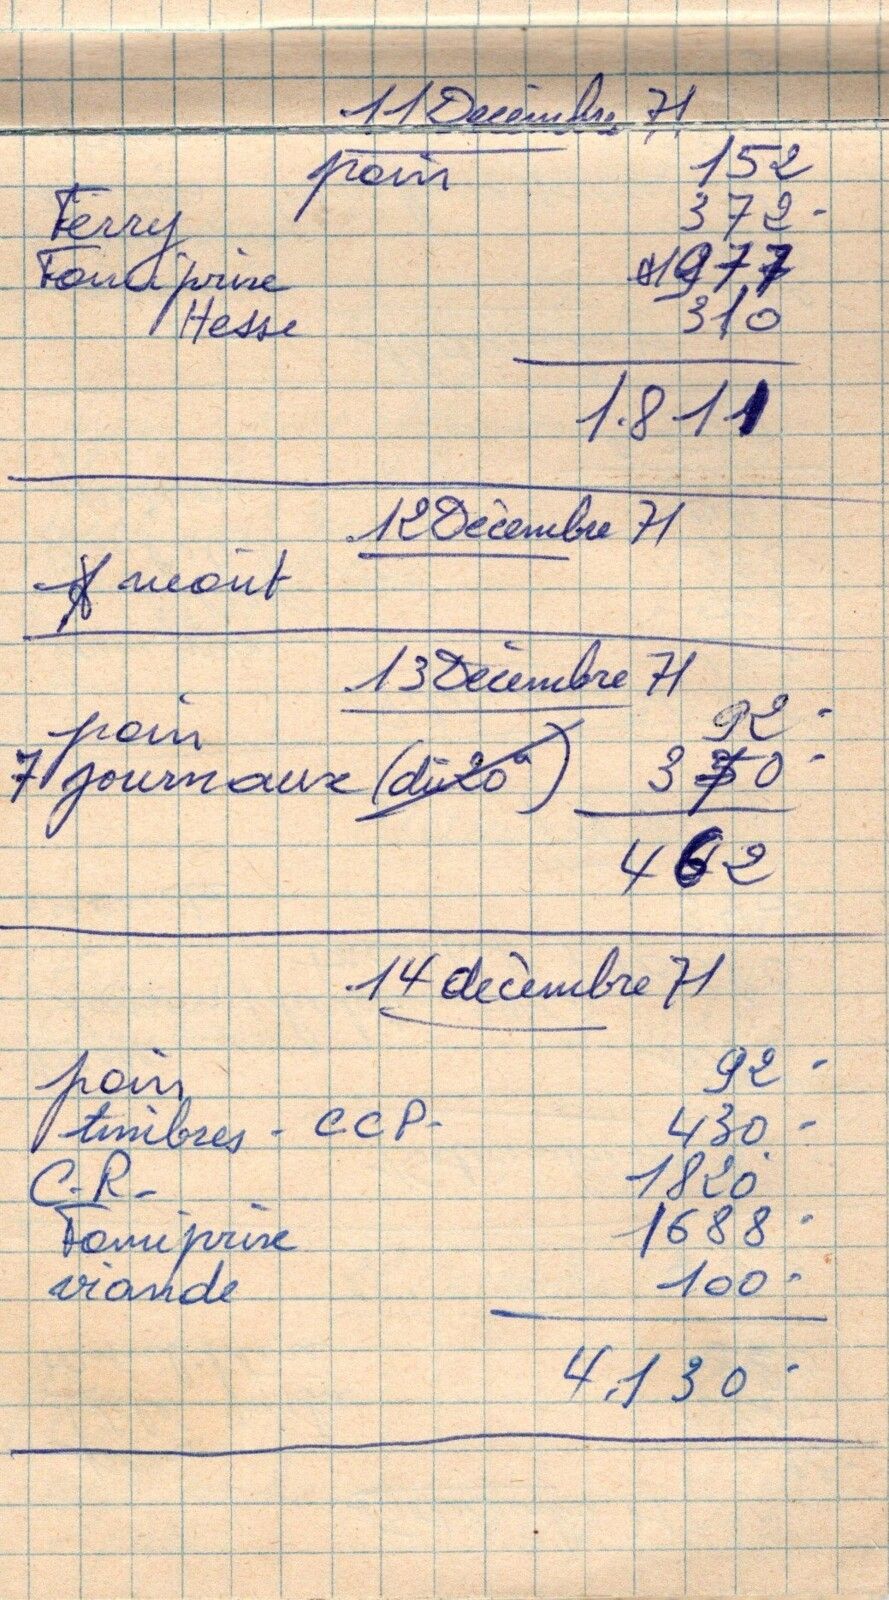 11 Decembre 71
pain 152
Ferry 372-
Famiprix 977
Hesse 310
1.811
12 Décembre 71
neant
13 Décembre 71
pain 92-
7 journaux (du 20) 370-
462
14 décembre 71
pain 92-
timbres - CCP- 430-
C.R- 1820
Famiprix 1688-
viande 100-
4.130-